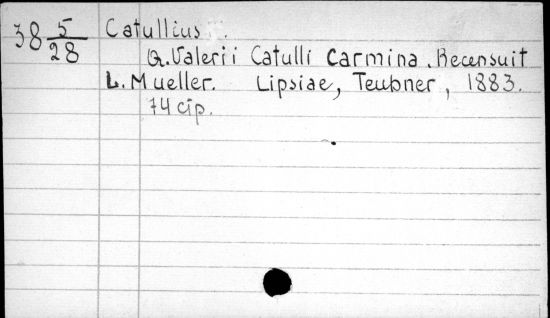 38 5/28 Catullius.
Q. Valerii Catulli Carmina. Recensuit
L. Mueller. Lipsiae, Teubner, 1883.
74 cтр.